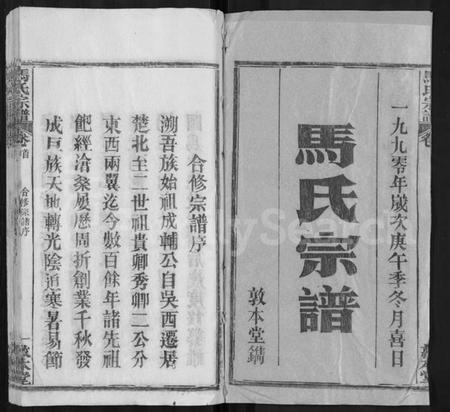 一九九零年歲次庚午季冬月喜日
馬氏宗譜
敦本堂鐫
馬氏宗譜
卷首
合修宗譜序
敦本堂
合修宗譜序
溯吾族始祖成輔公自吳西遷居
楚北至二世祖貴卿秀卿二公分
東西兩翼迄今數百餘年諸先祖
飽經滄桑屢歷周折創業千秋發
成巨族天地轉光陰迫寒暑易節